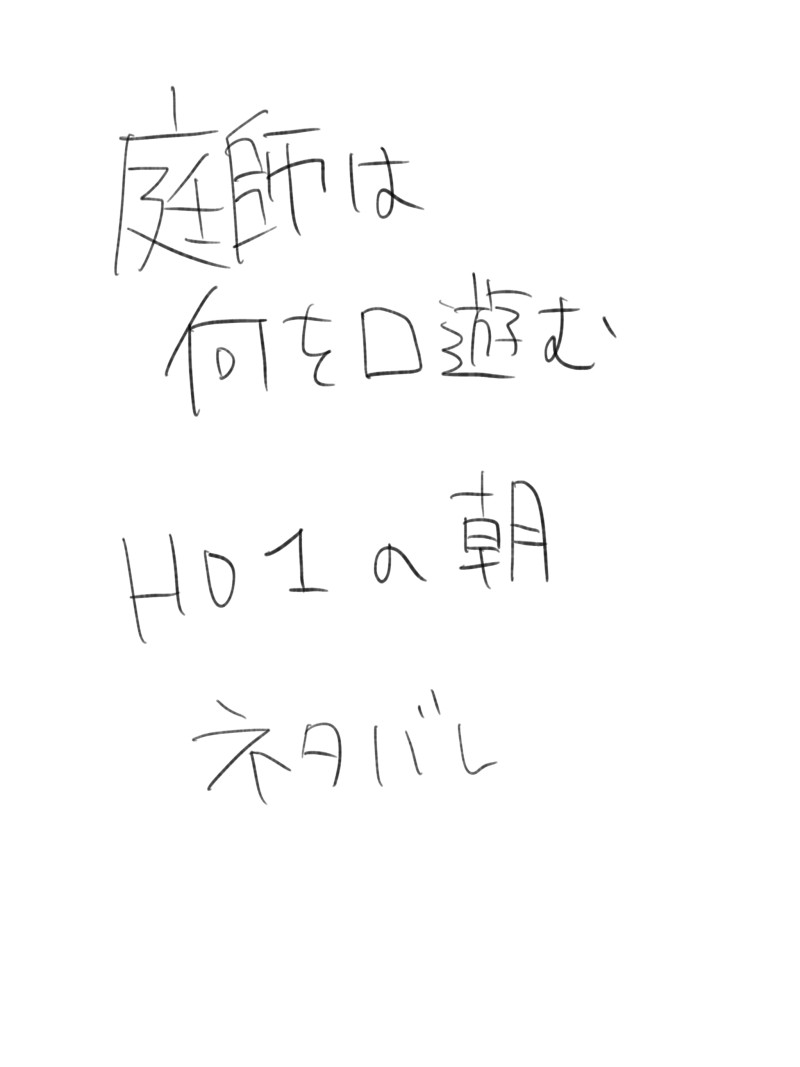 庭師は
何を口遊む
HO1の朝
ネタバレ